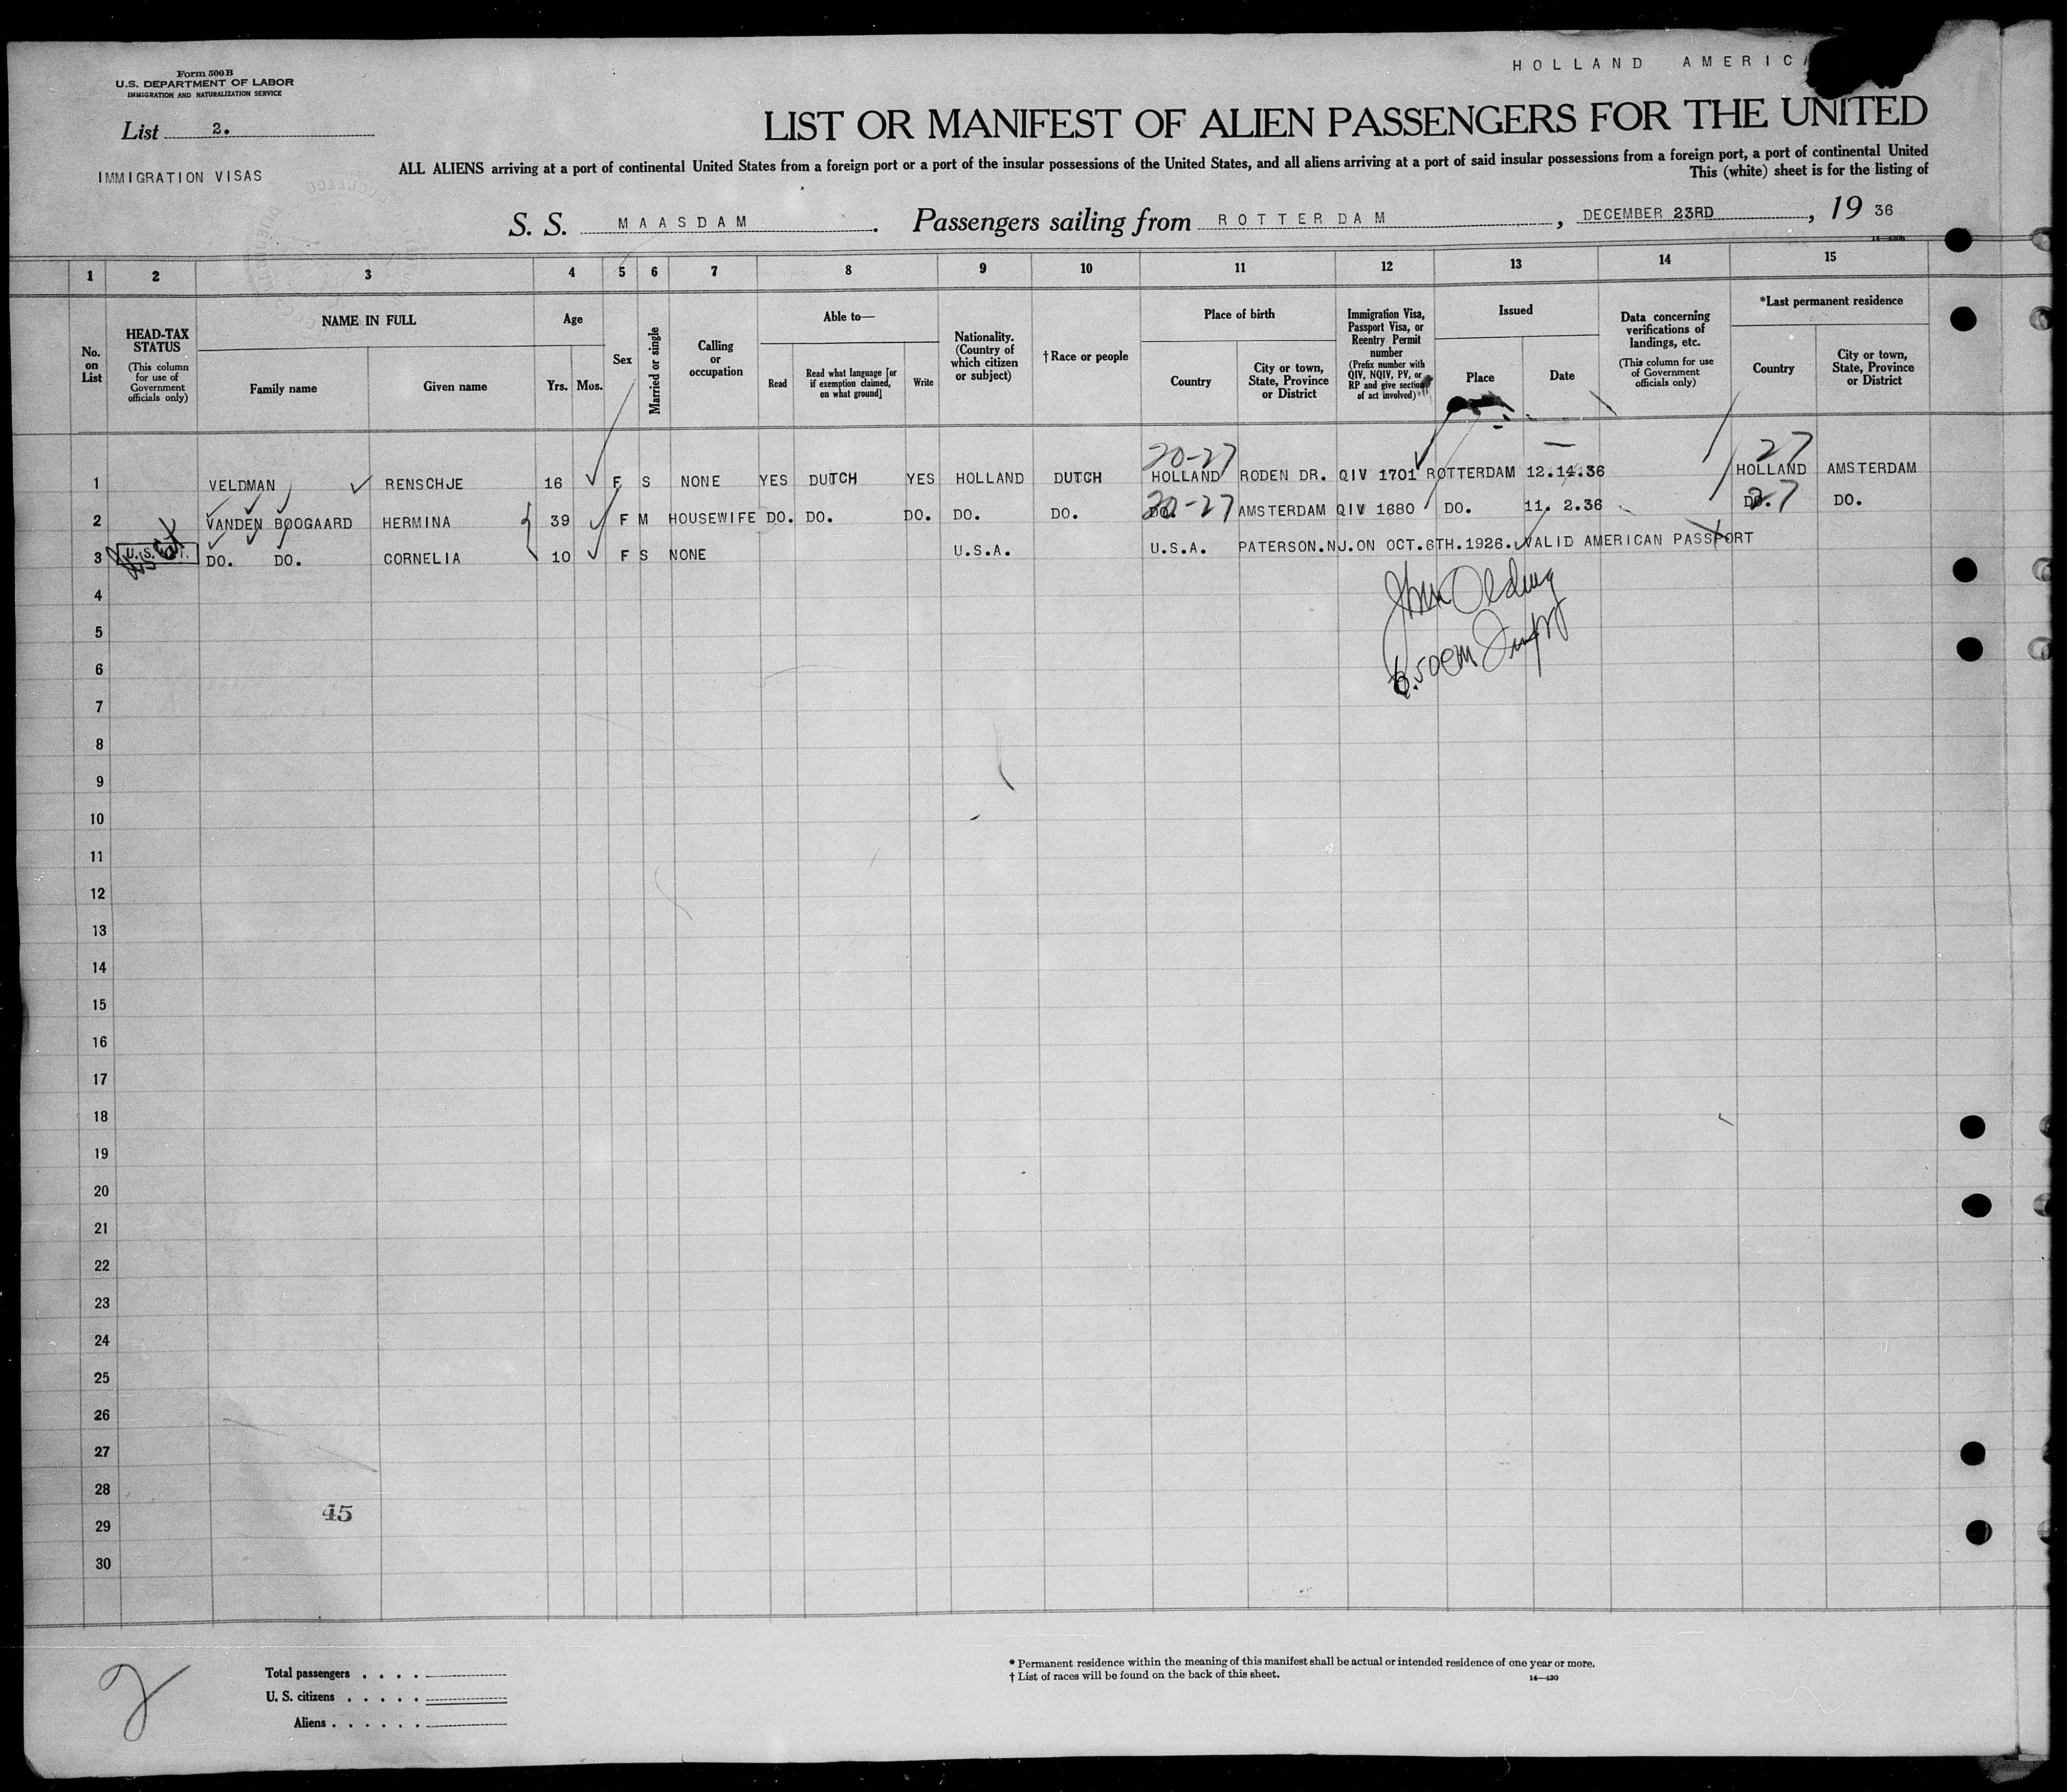 HOLLAND AMERICA
Form 500 B
U.S. DEPARTMENT OF LABOR
IMMIGRATION AND NATURALIZATION SERVICE
List 2.
IMMIGRATION VISAS
LIST OR MANIFEST OF ALIEN PASSENGERS FOR THE UNITED
ALL ALIENS arriving at a port of continental United States from a foreign port or a port of the insular possessions of the United States, and all aliens arriving at a port of said insular possessions from a foreign port, a port of continental United
This (white) sheet is for the listing of
S. S. MAASDAM. Passengers sailing from ROTTERDAM, DECEMBER 23RD, 19 36
1 2 3 4 5 6 7 8 9 10 11 12 13 14 15
No. on List
HEAD-TAX STATUS (This column for use of Government officials only)
NAME IN FULL
Family name Given name
Age
Yrs. Mos.
Sex
Married or single
Calling or occupation
Able to—
Read Read what language [or if exemption claimed, on what ground] Write
Nationality. (Country of which citizen or subject)
† Race or people
Place of birth
Country City or town, State, Province or District
Immigration Visa, Passport Visa, or Reentry Permit number (Prefix number with QIV, NQIV, PV, or RP and give section of act involved)
Issued
Place Date
Data concerning verifications of landings, etc. (This column for use of Government officials only)
*Last permanent residence
Country City or town, State, Province or District
20-27 27
1 VELDMAN RENSCHJE 16 F S NONE YES DUTCH YES HOLLAND DUTCH HOLLAND RODEN DR. QIV 1701 ROTTERDAM 12.14.36 HOLLAND AMSTERDAM
2 VANDEN BOOGAARD HERMINA 39 F M HOUSEWIFE DO. DO. DO. DO. DO. DO. 20-27 AMSTERDAM QIV 1680 DO. 11. 2.36 DO. 27 DO.
3 DO. DO. CORNELIA 10 F S NONE U.S.A. U.S.A. PATERSON.NJ.ON OCT.6TH.1926. VALID AMERICAN PASSPORT
4
5
6
7
8
9
10
11
12
13
14
15
16
17
18
19
20
21
22
23
24
25
26
27
28
45
29
30
2
Total passengers
U. S. citizens
Aliens
* Permanent residence within the meaning of this manifest shall be actual or intended residence of one year or more.
† List of races will be found on the back of this sheet. 14—430